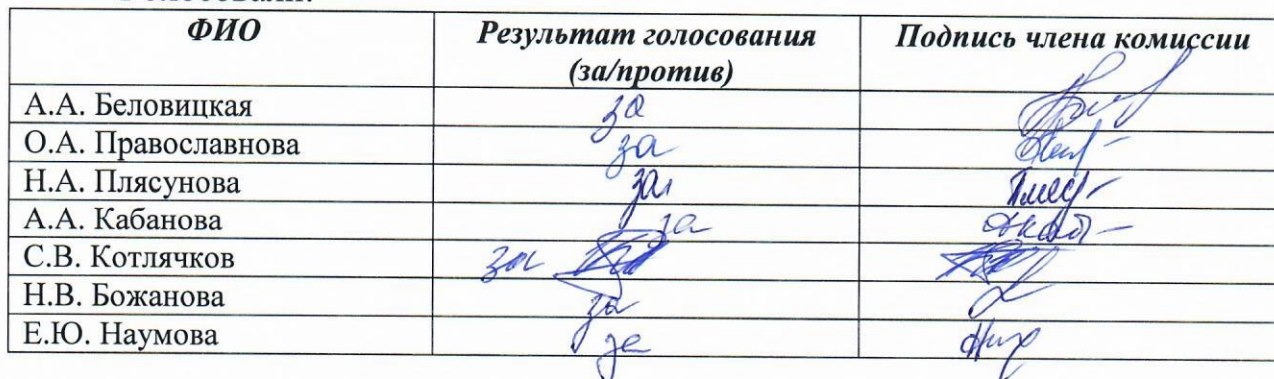 ФИО Результат голосования Подпись члена комиссии
(за/против)
А.А. Беловицкая за
О.А. Православнова за
Н.А. Плясунова за
А.А. Кабанова за
С.В. Котлячков за
Н.В. Божанова за
Е.Ю. Наумова за